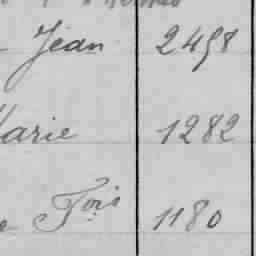 Jean 2458
Marie 1282
e Fois 1180